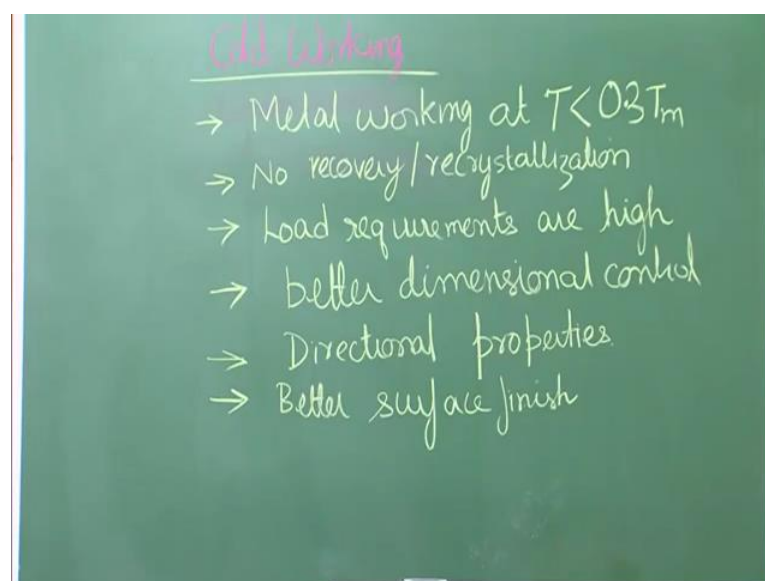 Cold Working
→ Metal working at T < 0.3Tm
→ No recovery/recrystallization
→ Load requirements are high
→ better dimensional control
→ Directional properties.
→ Better surface finish